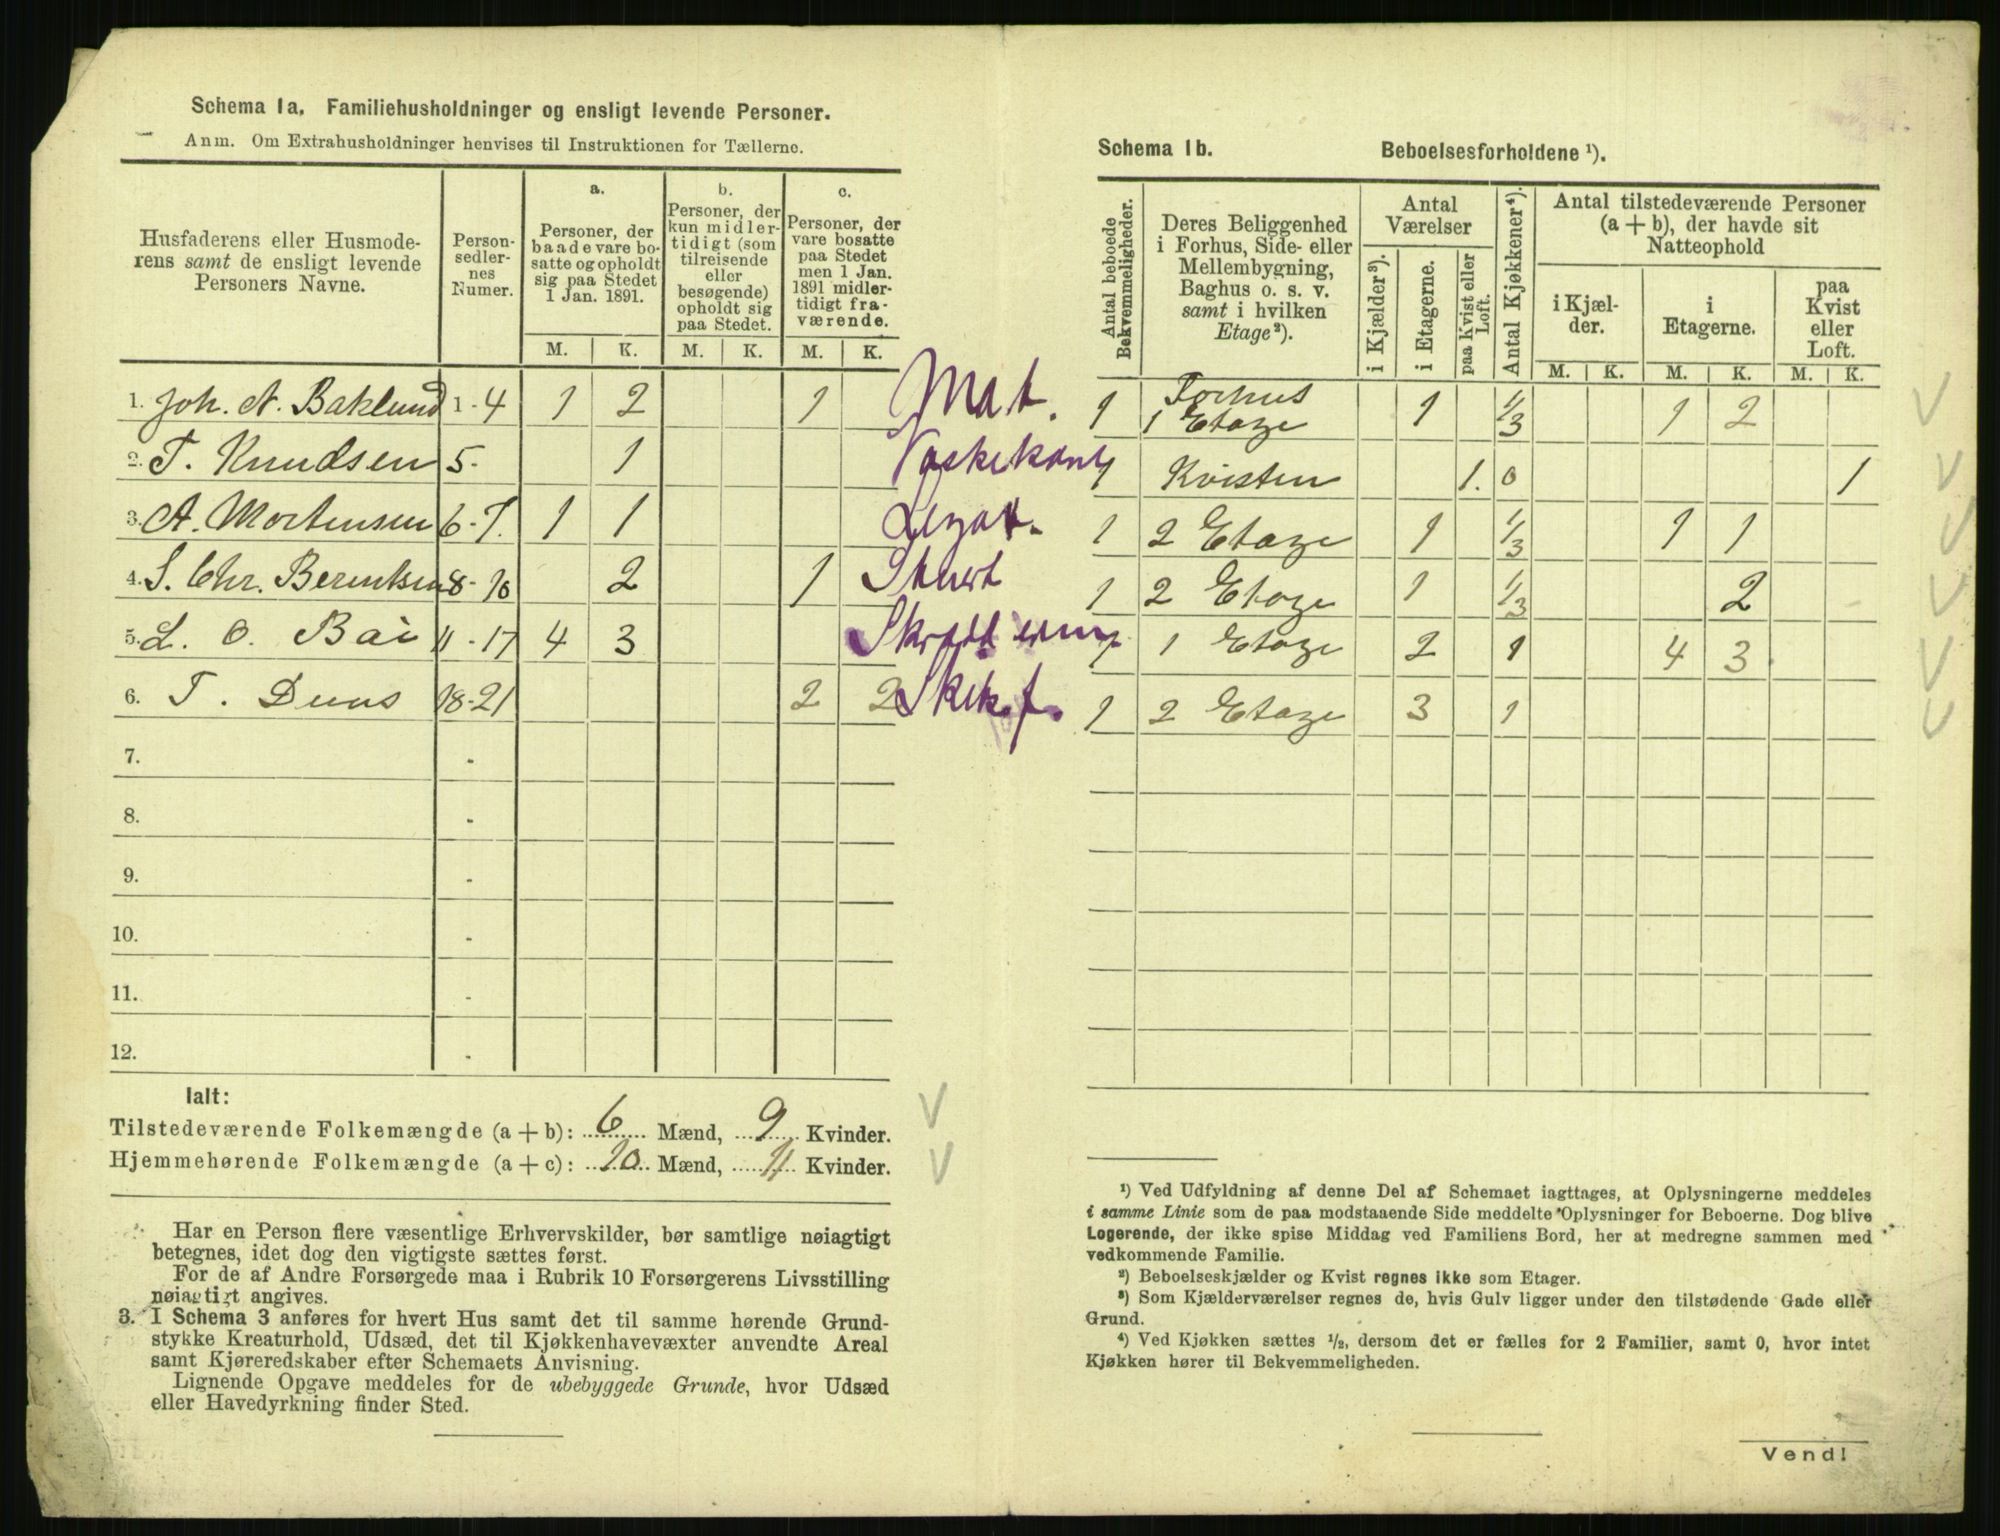 Schema 1a. Familiehusholdninger og ensligt levende Personer.
Anm. Om Extrahusholdninger henvises til Instruktionen for Tællerne.
Husfaderens eller Husmode-
rens samt de ensligt levende
Personers Navne.
Person-
sedler-
nes
Numer.
a.
Personer, der
baade vare bo-
satte og opholdt
sig paa Stedet
1 Jan. 1891.
b.
Personer, der
kun midler-
tidigt (som
tilreisende
eller
besøgende)
opholdt sig
paa Stedet.
c.
Personer, der
vare bosatte
paa Stedet
men 1 Jan.
1891 midler-
tidigt fra-
værende.
M. K. M. K. M. K.
1. Joh. A. Baklund 1-4 1 2 1 Mat.
2. T. Knudsen 5. 1
3. A. Mortensen 6-7. 1 1
4. S. Chr. Berentsen 8-10 2 1 Stuert
5. L. O. Bai 11-17 4 3
6. T. Duus 18-21 2 2 Skibsf.
7.
8.
9.
10.
11.
12.
Ialt:
Tilstedeværende Folkemængde (a + b): 6 Mænd, 9 Kvinder.
Hjemmehørende Folkemængde (a + c): 10 Mænd, 11 Kvinder.
Har en Person flere væsentlige Erhvervskilder, bør samtlige nøiagtigt
betegnes, idet dog den vigtigste sættes først.
For de af Andre Forsørgede maa i Rubrik 10 Forsørgerens Livsstilling
nøiagtigt angives.
3. I Schema 3 anføres for hvert Hus samt det til samme hørende Grund-
stykke Kreaturhold, Udsæd, det til Kjøkkenhavevæxter anvendte Areal
samt Kjøreredskaber efter Schemaets Anvisning.
Lignende Opgave meddeles for de ubebyggede Grunde, hvor Udsæd
eller Havedyrkning finder Sted.
Schema 1b. Beboelsesforholdene ¹).
Antal beboede
Bekvemmeligheder.
Deres Beliggenhed
i Forhus, Side- eller
Mellembygning,
Baghus o. s. v.
samt i hvilken
Etage²).
Antal
Værelser
i Kjælder³).
i Etagerne.
paa Kvist eller
Loft.
Antal Kjøkkener⁴).
Antal tilstedeværende Personer
(a + b), der havde sit
Natteophold
i Kjæl-
der.
i
Etagerne.
paa
Kvist
eller
Loft.
M. K. M. K. M. K.
1 Forhus
1 Etage 1 1/3 1 2
1 Kvisten 1. 0 1
1 2 Etage 1 1/3 1 1
1 2 Etage 1 1/3 2
1 1 Etage 2 1 4 3
1 2 Etage 3 1
¹) Ved Udfyldning af denne Del af Schemaet iagttages, at Oplysningerne meddeles
i samme Linie som de paa modstaaende Side meddelte Oplysninger for Beboerne. Dog blive
Logerende, der ikke spise Middag ved Familiens Bord, her at medregne sammen med
vedkommende Familie.
²) Beboelseskjælder og Kvist regnes ikke som Etager.
³) Som Kjælderværelser regnes de, hvis Gulv ligger under den tilstødende Gade eller
Grund.
⁴) Ved Kjøkken sættes ½, dersom det er fælles for 2 Familier, samt 0, hvor intet
Kjøkken hører til Bekvemmeligheden.
Vend!